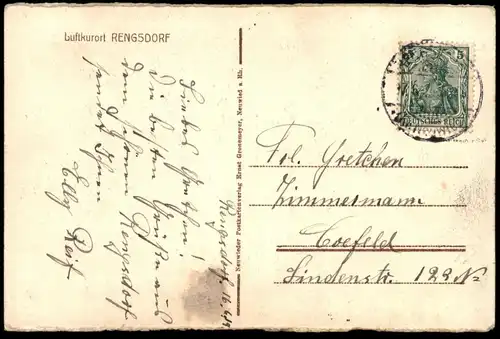 Luftkurort RENGSDORF
Rengsdorf 16.
Liebes Gretchen!
Die besten Grüße aus
dem schönen Rengsdorf
sendet Ihnen
Elly Reif
Neuwieder Postkartenverlag Ernst Grossmeyer, Neuwied a. Rh.
5
DEUTSCHES REICH
Frl. Gretchen
Zimmermann
Coefeld
Lindenstr. 123